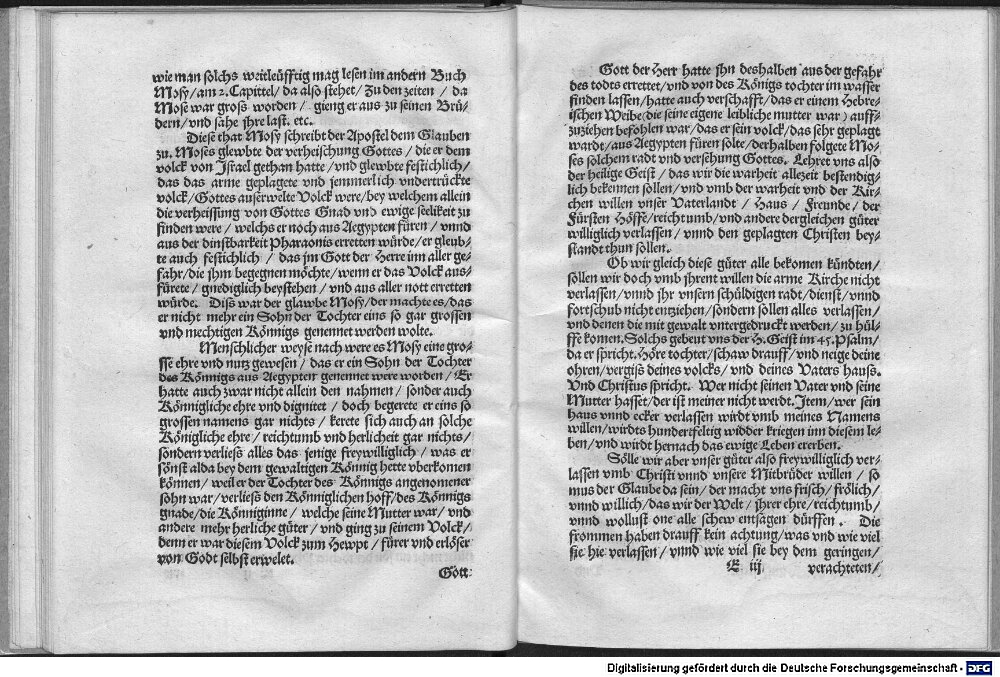 wie man solchs weitleüfftig mag lesen im andern Buch
Mosy/am 2. Capittel/da also stehet/Zu den zeiten / da
Mose war gross worden / gieng er aus zu seinen Brü-
dern/vnd sahe jhre last. etc.
Diese that Mosy schreibt der Apostel dem Glauben
zu. Moses glewbte der verheischung Gottes / die er dem
volck von Israel gethan hatte /vnd glewbte festichlich/
das das arme geplagete vnd jemmerlich vndertrückte
volck/Gottes auserwelte Volck were/bey welchem allein
die verheissung von Gottes Gnad vnd ewige seelikeit zu
finden were / welchs er noch aus Aegypten füren / vnnd
aus der dinstbarkeit Pharaonis erretten würde/er gleub-
te auch festichlich / das jm Gott der Herre inn aller ge-
fahr/die jhm begegnen möchte/wenn er das Volck aus-
fürete/ gnediglich beystehen / vnd aus aller nott erretten
würde. Diss war der glawbe Mosy/der machte es/das
er nicht mehr ein Sohn der Tochter eins so gar grossen
vnd mechtigen Könnigs genennet werden wolte.
Menschlicher weyse nach were es Mosy eine gro-
sse ehre vnd nutz gewesen / das er ein Sohn der Tochter
des Könnigs aus Aegypten genennet were worden / Er
hatte auch zwar nicht allein den nahmen / sonder auch
Könnigliche ehre vnd dignitet / doch begerete er eins so
grossen namens gar nichts / kerete sich auch an solche
Königliche ehre / reichtumb vnd herlicheit gar nichts/
sondern verliess alles das jenige freywilliglich / was er
sönst alda bey dem gewaltigen Könnig hette vberkomen
können / weil er der Tochter des Könnigs angenomener
sohn war/verliess den Könniglichen hoff/des Könnigs
gnade/die Könniginne / welche seine Mutter war/ vnd
andere mehr herliche güter / vnd ging zu seinem Volck/
denn er war diesem Volck zum Hewpt / fürer vnd erlöser
von Godt selbst erwelet.
Gött-
Gott der Herr hatte jhn deshalben aus der gefahr
des todts errettet/vnd von des Königs tochter im wasser
finden lassen/hatte auch verschafft/das er einem Hebre-
ischen Weibe (die seine eigene leibliche mutter war) auff-
zuziehen befohlen war/das er sein volck/das sehr geplagt
wardt/aus Aegypten füren solte/derhalben folgete Mo-
ses solchem radt vnd versehung Gottes. Lehret vns also
der heilige Geist / das wir die warheit allezeit bestendig-
lich bekennen sollen/vnd vmb der warheit vnd der Kir-
chen willen vnser Vaterlandt / Haus / Freunde / der
Fürsten Höffe/reichtumb/vnd andere dergleichen güter
williglich verlassen/ vnnd den geplagten Christen bey-
standt thun sollen.
Ob wir gleich diese güter alle bekomen kündten/
sollen wir doch vmb jhrent willen die arme Kirche nicht
verlassen/vnnd jhr vnsern schüldigen radt/dienst/vnnd
fortschub nicht entziehen/sondern sollen alles verlassen/
vnd denen die mit gewalt vntergedruckt werden/ zu hül-
ffe komen. Solchs gebeut vns der H. Geist im 45. Psalm/
da er spricht. Höre tochter/schaw drauff/vnd neige deine
ohren/vergiss deines volcks/ vnd deines Vaters hauss.
Vnd Christus spricht. Wer nicht seinen Vater vnd seine
Mutter hasset/der ist meiner nicht werdt. Item/wer sein
haus vnnd ecker verlassen wirdt vmb meines Namens
willen/wirdts hundertfeltig widder kriegen inn diesem le-
ben/vnd wirdt hernach das ewige Leben ererben.
Sölle wir aber vnser güter also freywilliglich ver-
lassen vmb Christi vnnd vnsere Mitbrüder willen / so
mus der Glaube da sein/der macht vns frisch/frölich/
vnnd willich/das wir der Welt / jhrer ehre/reichtumb/
vnnd wollust one alle schew entsagen dürffen. Die
frommen haben drauff kein achtung/was vnd wie viel
sie hie verlassen / vnnd wie viel sie bey dem geringen/
E iij verachteten/
Digitalisierung gefördert durch die Deutsche Forschungsgemeinschaft - DFG